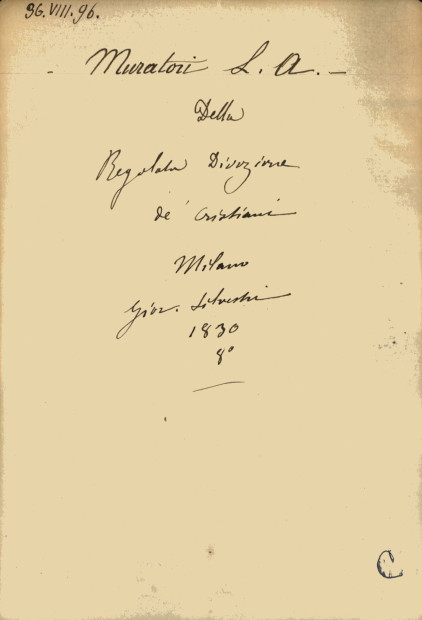 96.VIII.96.
- Muratori L. A. -
Della
Regolata Divozione
de' Cristiani
Milano
Giov. Silvestri
1830
8°
C